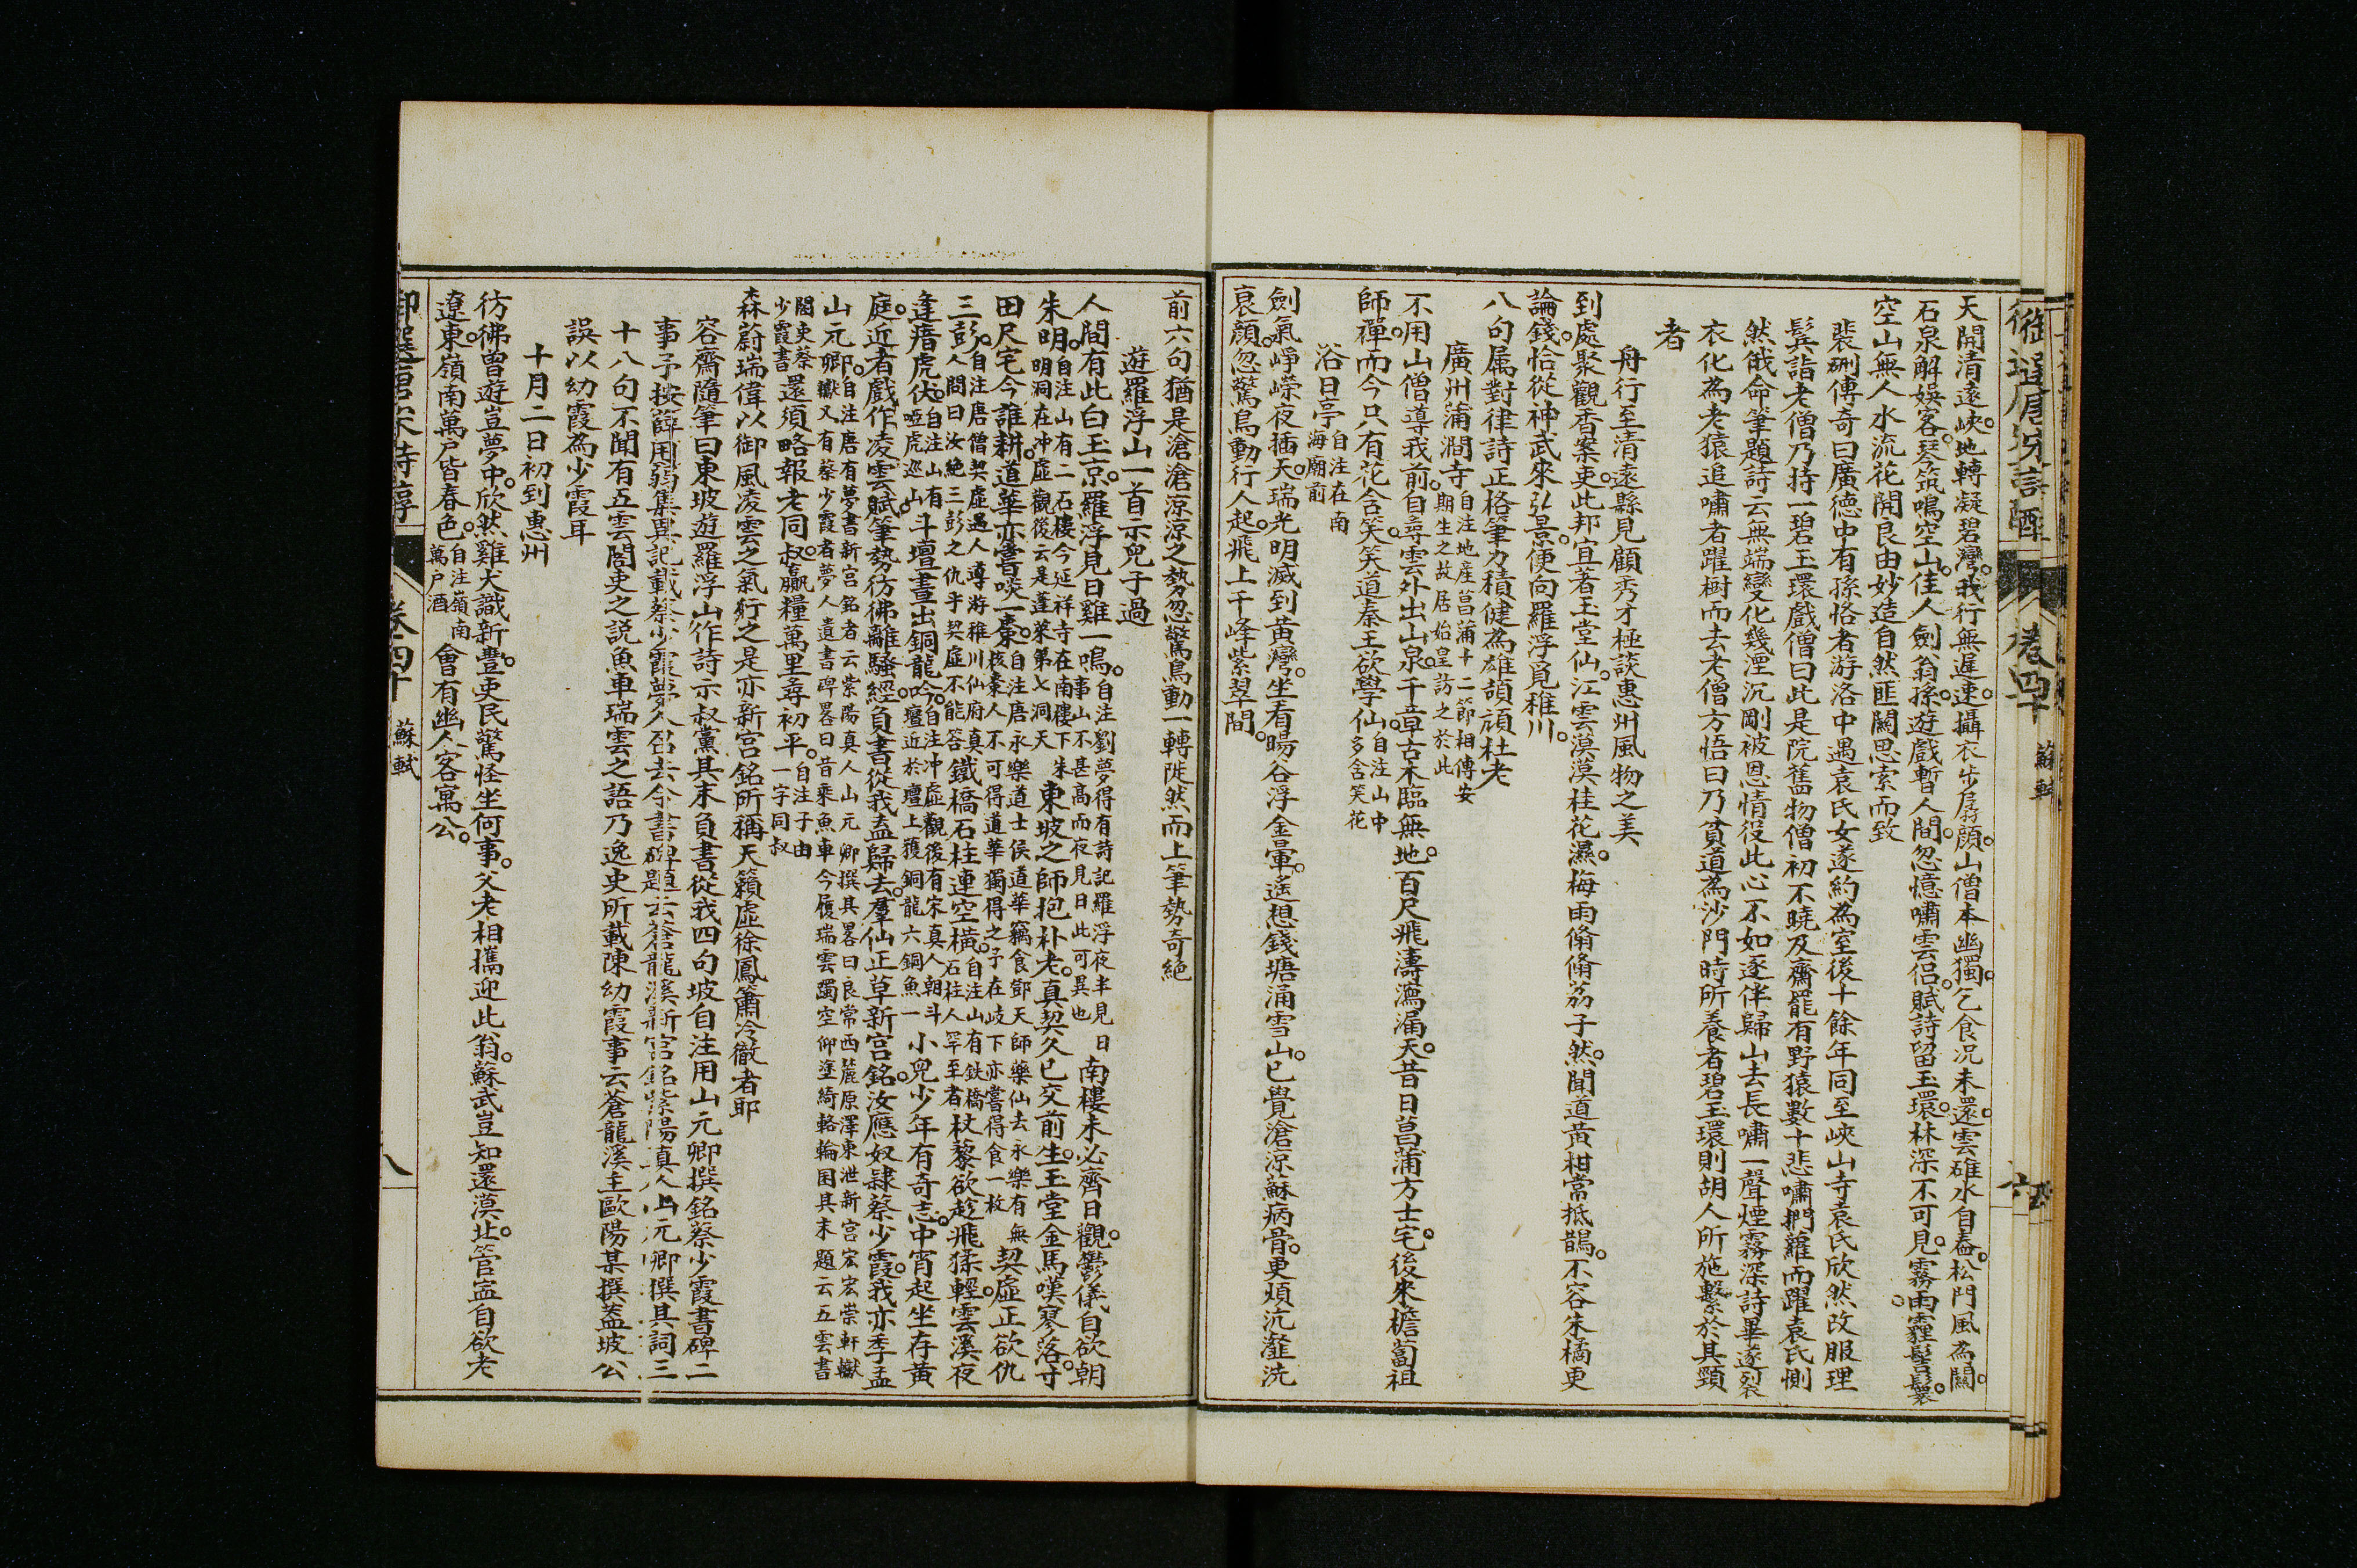 天開清遠峽。地轉凝碧灣。我行無遲速。攝衣步孱顏。山僧本幽獨。乞食況未還。雲碓水自舂。松門風為關。
石泉解娛客。琴筑鳴空山。佳人劍翁孫。遊戲暫人間。忽憶嘯雲侶。賦詩留玉環。林深不可見。霧雨霾髻鬟。
空山無人水流花開良由妙造自然匪關思索而致
裴硎傳奇曰廣德中有孫恪者游洛中遇袁氏女遂約為室後十餘年同至峽山寺袁氏欣然改服理
鬂詣老僧乃持一碧玉環戲僧曰此是院舊物僧初不曉及齋罷有野猿數十悲嘯捫蘿而躍袁氏惻
然俄命筆題詩云無端變化幾湮沉剛被恩情役此心不如逐伴歸山去長嘯一聲煙霧深詩畢遂裂
衣化為老猿追嘯者躍樹而去老僧方悟曰乃貧道為沙門時所養者碧玉環則胡人所施繫於其頸
者
舟行至清遠縣見顧秀才極談惠州風物之美
到處聚觀香案吏。此邦宜著玉堂仙。江雲漠漠桂花濕。梅雨翛翛荔子然。聞道黃柑常抵鵲。不容朱橘更
論錢。恰從神武來弘景。便向羅浮覓稚川。
八句属對律詩正格筆力積健為雄頡頏杜老
廣州蒲澗寺自注地產菖蒲十二節相傳安期生之故居始皇訪之於此
不用山僧導我前。自尋雲外出山泉。千章古木臨無地。百尺飛濤瀉漏天。昔日菖蒲方士宅。後來檐蔔祖
師禪。而今只有花含笑。笑道秦王欲學仙。自注山中多含笑花
浴日亭自注在南海廟前
劍氣崢嶸夜插天。瑞光明滅到黃灣。坐看暘谷浮金暈。遙想錢塘涌雪山。已覺滄涼蘇病骨。更煩沆瀣洗
衰顏。忽驚鳥動行人起。飛上千峰紫翠間。
前六句猶是滄滄涼涼之勢忽驚鳥動一轉陡然而上筆勢奇絕
遊羅浮山一首示兒子過
人間有此白玉京。羅浮見日雞一鳴。自注劉夢得有詩記羅浮夜半見日事山不甚高而夜見日此可異也南樓未必齊日觀。鬱儀自欲朝
朱明。自注山有二石樓今延祥寺在南樓下朱明洞在沖虛觀後云是蓬萊第七洞天東坡之師抱朴老。真契久已交前生。玉堂金馬嘆寥落。寸
田尺宅今誰耕。道華亦嘗啖一棗。自注唐永樂道士侯道華竊食鄧天師藥仙去永樂有無核棗人不可得道華獨得之予在岐下亦嘗得食一枚契虛正欲仇
三彭。自注唐僧契虛遇人導游稚川仙府真人問曰汝絕三彭之仇乎契虛不能答鐵橋石柱連空橫。自注山有鉄橋石柱人罕至者杖藜欲趁飛猱輕。雲溪夜
逢瘖虎伏。自注山有啞虎巡山斗壇晝出銅龍吟。自注冲虛觀後有宋真人朝斗壇近於壇上獲銅龍六銅魚一小兒少年有奇志。中宵起坐存黃
庭。近者戲作凌雲賦。筆勢彷彿離騷經。負書從我盍歸去。羣仙正草新宮銘。汝應奴隸蔡少霞。我亦季孟
山元卿。自注唐有夢書新宮銘者云紫陽真人山元卿撰其畧曰良常西麓原澤東泄新宮宏宏崇軒轞轞又有蔡少霞者夢人遺書碑畧曰昔乘魚車今履瑞雲躅空仰塗綺輅輪囷其末題云五雲書
閣吏蔡少霞書還須略報老同叔。贏糧萬里尋初平。自注子由一字同叔
森蔚瑞偉以御風凌雲之氣行之是亦新宮銘所稱天籟虛徐鳳簫冷徹者耶
容齋隨筆曰東坡遊羅浮山作詩示叔黨其末負書從我四句坡自注用山元卿撰銘蔡少霞書碑二
事予按薛用弱集異記載蔡少霞夢人召去令書碑題云蒼龍溪新宮銘紫陽真人山元卿撰其詞三
十八句不聞有五雲閣吏之說魚車瑞雲之語乃逸史所載陳幼霞事云蒼龍溪主歐陽某撰蓋坡公
誤以幼霞為少霞耳
十月二日初到惠州
彷彿曾遊豈夢中。欣然雞犬識新豐。吏民驚怪坐何事。父老相攜迎此翁。蘇武豈知還漠北。管寧自欲老
遼東。嶺南萬戶皆春色。自注嶺南萬戶酒會有幽人客寓公。
御選唐宋詩醇 卷四十 蘇軾 八